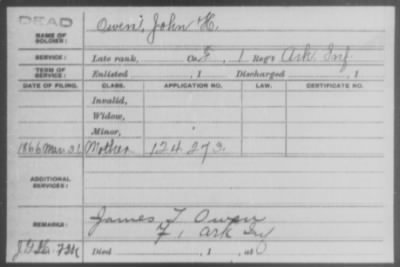 DEAD
NAME OF SOLDIER: Owen, John H.
SERVICE: Late rank, Co. F, 1 Reg't Ark. Inf
TERM OF SERVICE: Enlisted , 1 Discharged , 1
DATE OF FILING. CLASS. APPLICATION NO. LAW. CERTIFICATE NO.
Invalid,
Widow,
Minor,
1866 Mar 31 Mother 124273.
ADDITIONAL SERVICES:
REMARKS: James T Owen
F, 1 Ark Inf
Died , 1 , at